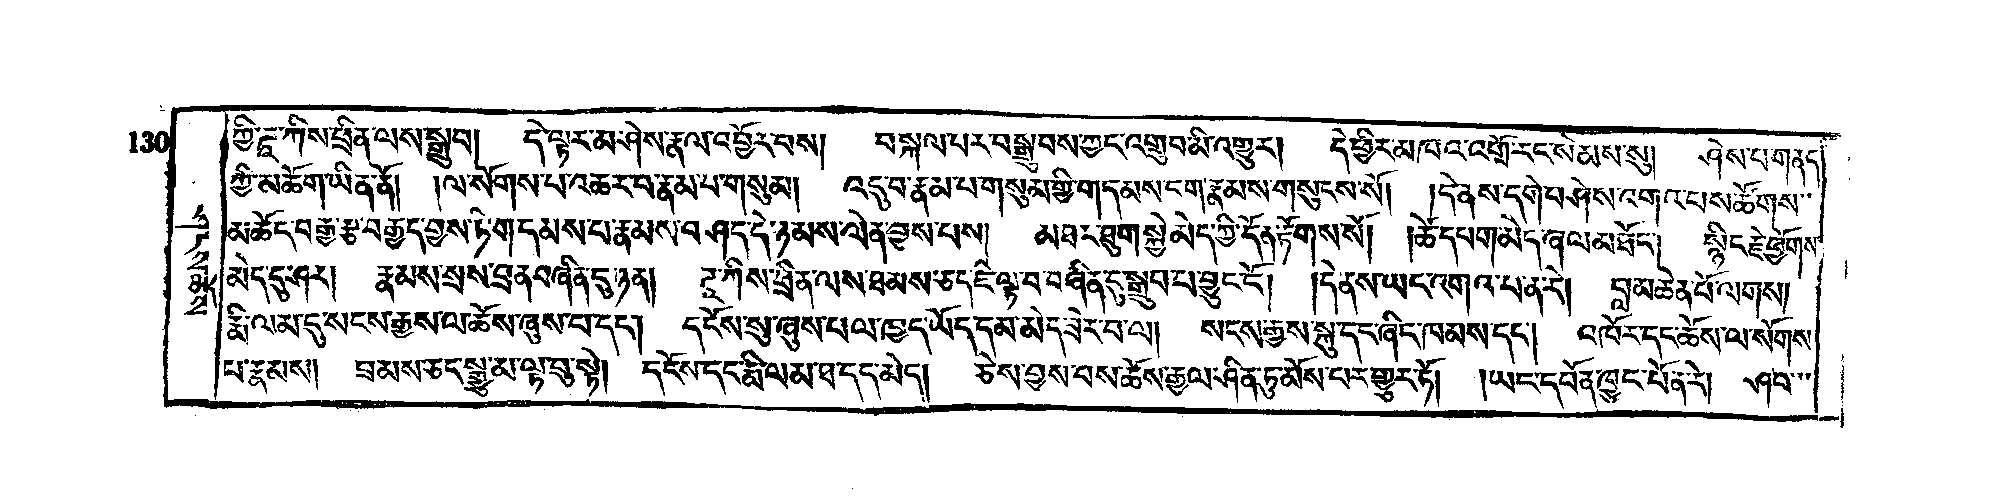 130
ཀྱི་ཌཱ་ཀིས་ཕྲིན་ལས་སྒྲུབ། དེ་ལྟར་མ་ཤེས་རྣལ་འབྱོར་པས། བསྐལ་པར་བསྒྲུབས་ཀྱང་འགྲུབ་མི་འགྱུར། དེ་ཕྱིར་མཁའ་འགྲོ་རང་སེམས་སུ། ཤེས་པ་གནད་
ཀྱི་མཆོག་ཡིན་ནོ། །ལ་སོགས་པ་འཆར་བ་རྣམ་པ་གསུམ། འདུ་བ་རྣམ་པ་གསུམ་གྱི་གདམས་ངག་རྣམས་གསུངས་སོ། །དེ་ནས་དགེ་བཤེས་འགའ་པས་ཚོགས་
མ་ཆོད་བརྒྱ་རྩ་བརྒྱད་བྱས་ཏེ་གདམས་པ་རྣམས་བཤད་དེ་ཉམས་ལེན་བྱས་པས། མཐར་ཐུག་སྐྱེ་མེད་ཀྱི་དོན་རྟོགས་སོ། །ཚེ་དཔག་མེད་ཞལ་མཐོང་། སྙིང་རྗེ་ཕྱོགས་
མེད་དུ་ཤར། རྣམ་སྲས་བྲན་བཞིན་དུ་ཉན། ཌཱ་ཀིས་ཕྲིན་ལས་ཐམས་ཅད་ཇི་ལྟ་བ་བཞིན་དུ་སྒྲུབ་པ་བྱུང་ངོ་། །དེ་ནས་ཡང་འགའ་པ་ན་རེ། བླ་མ་ཆེན་པོ་ལགས།
རྨི་ལམ་དུ་སངས་རྒྱས་ལ་ཆོས་ཞུས་པ་དང་། དངོས་སུ་ཞུས་པ་ལ་ཁྱད་ཡོད་དམ་མེད་ཟེར་བ་ལ། སངས་རྒྱས་སྐུ་དང་ཞིང་ཁམས་དང་། འཁོར་དང་ཆོས་ལ་སོགས་
པ་རྣམས། ཐམས་ཅད་སྒྱུ་མ་ལྟ་བུ་སྟེ། དངོས་དང་རྨི་ལམ་ཐ་དད་མེད། ཅེས་བྱས་པས་ཆོས་རྒྱལ་ཤིན་ཏུ་མོས་པར་གྱུར་ཏོ། །ཡང་དཔོན་ཁྱུང་པོ་ན་རེ། ཤབ་